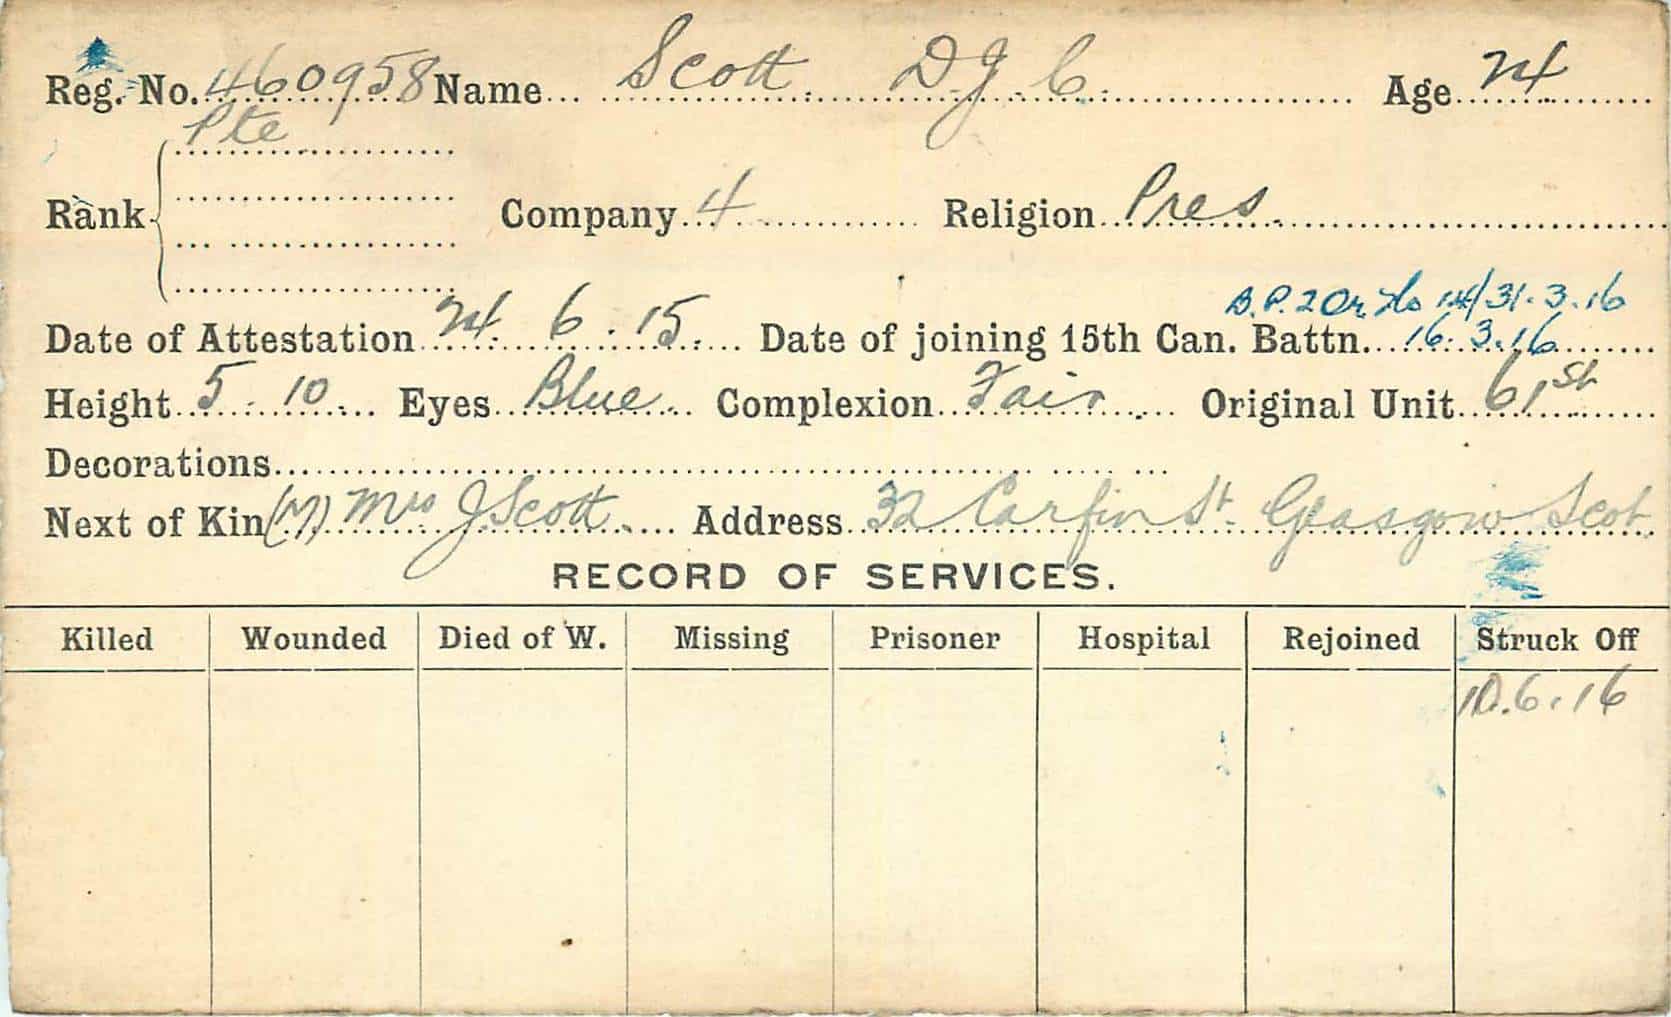 Reg. No. 460958 Name Scott D J C Age 24
Pte
Rank Company 4 Religion Pres.
B.P. 2 Or No 14/31.3.16
Date of Attestation 24.6.15 Date of joining 15th Can. Battn. 16.3.16
Height 5.10 Eyes Blue Complexion Fair Original Unit 61st
Decorations
Next of Kin (M) Mrs J Scott Address 32 Carfin St. Glasgow Scot
RECORD OF SERVICES.
Killed Wounded Died of W. Missing Prisoner Hospital Rejoined Struck Off
10.6.16